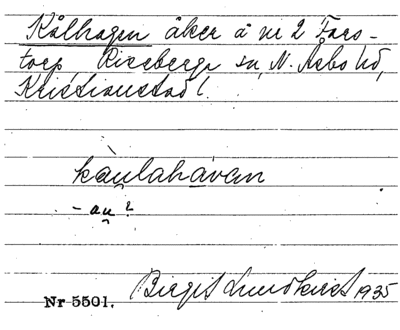 Kålhagen åker å nr 2 Fars-
torp Riseberga sn, N. Åsbo hd,
Kristianstad l.
kau̯lahávan
- au̯ ?
Nr 5501. Birgit Lundkvist 1935